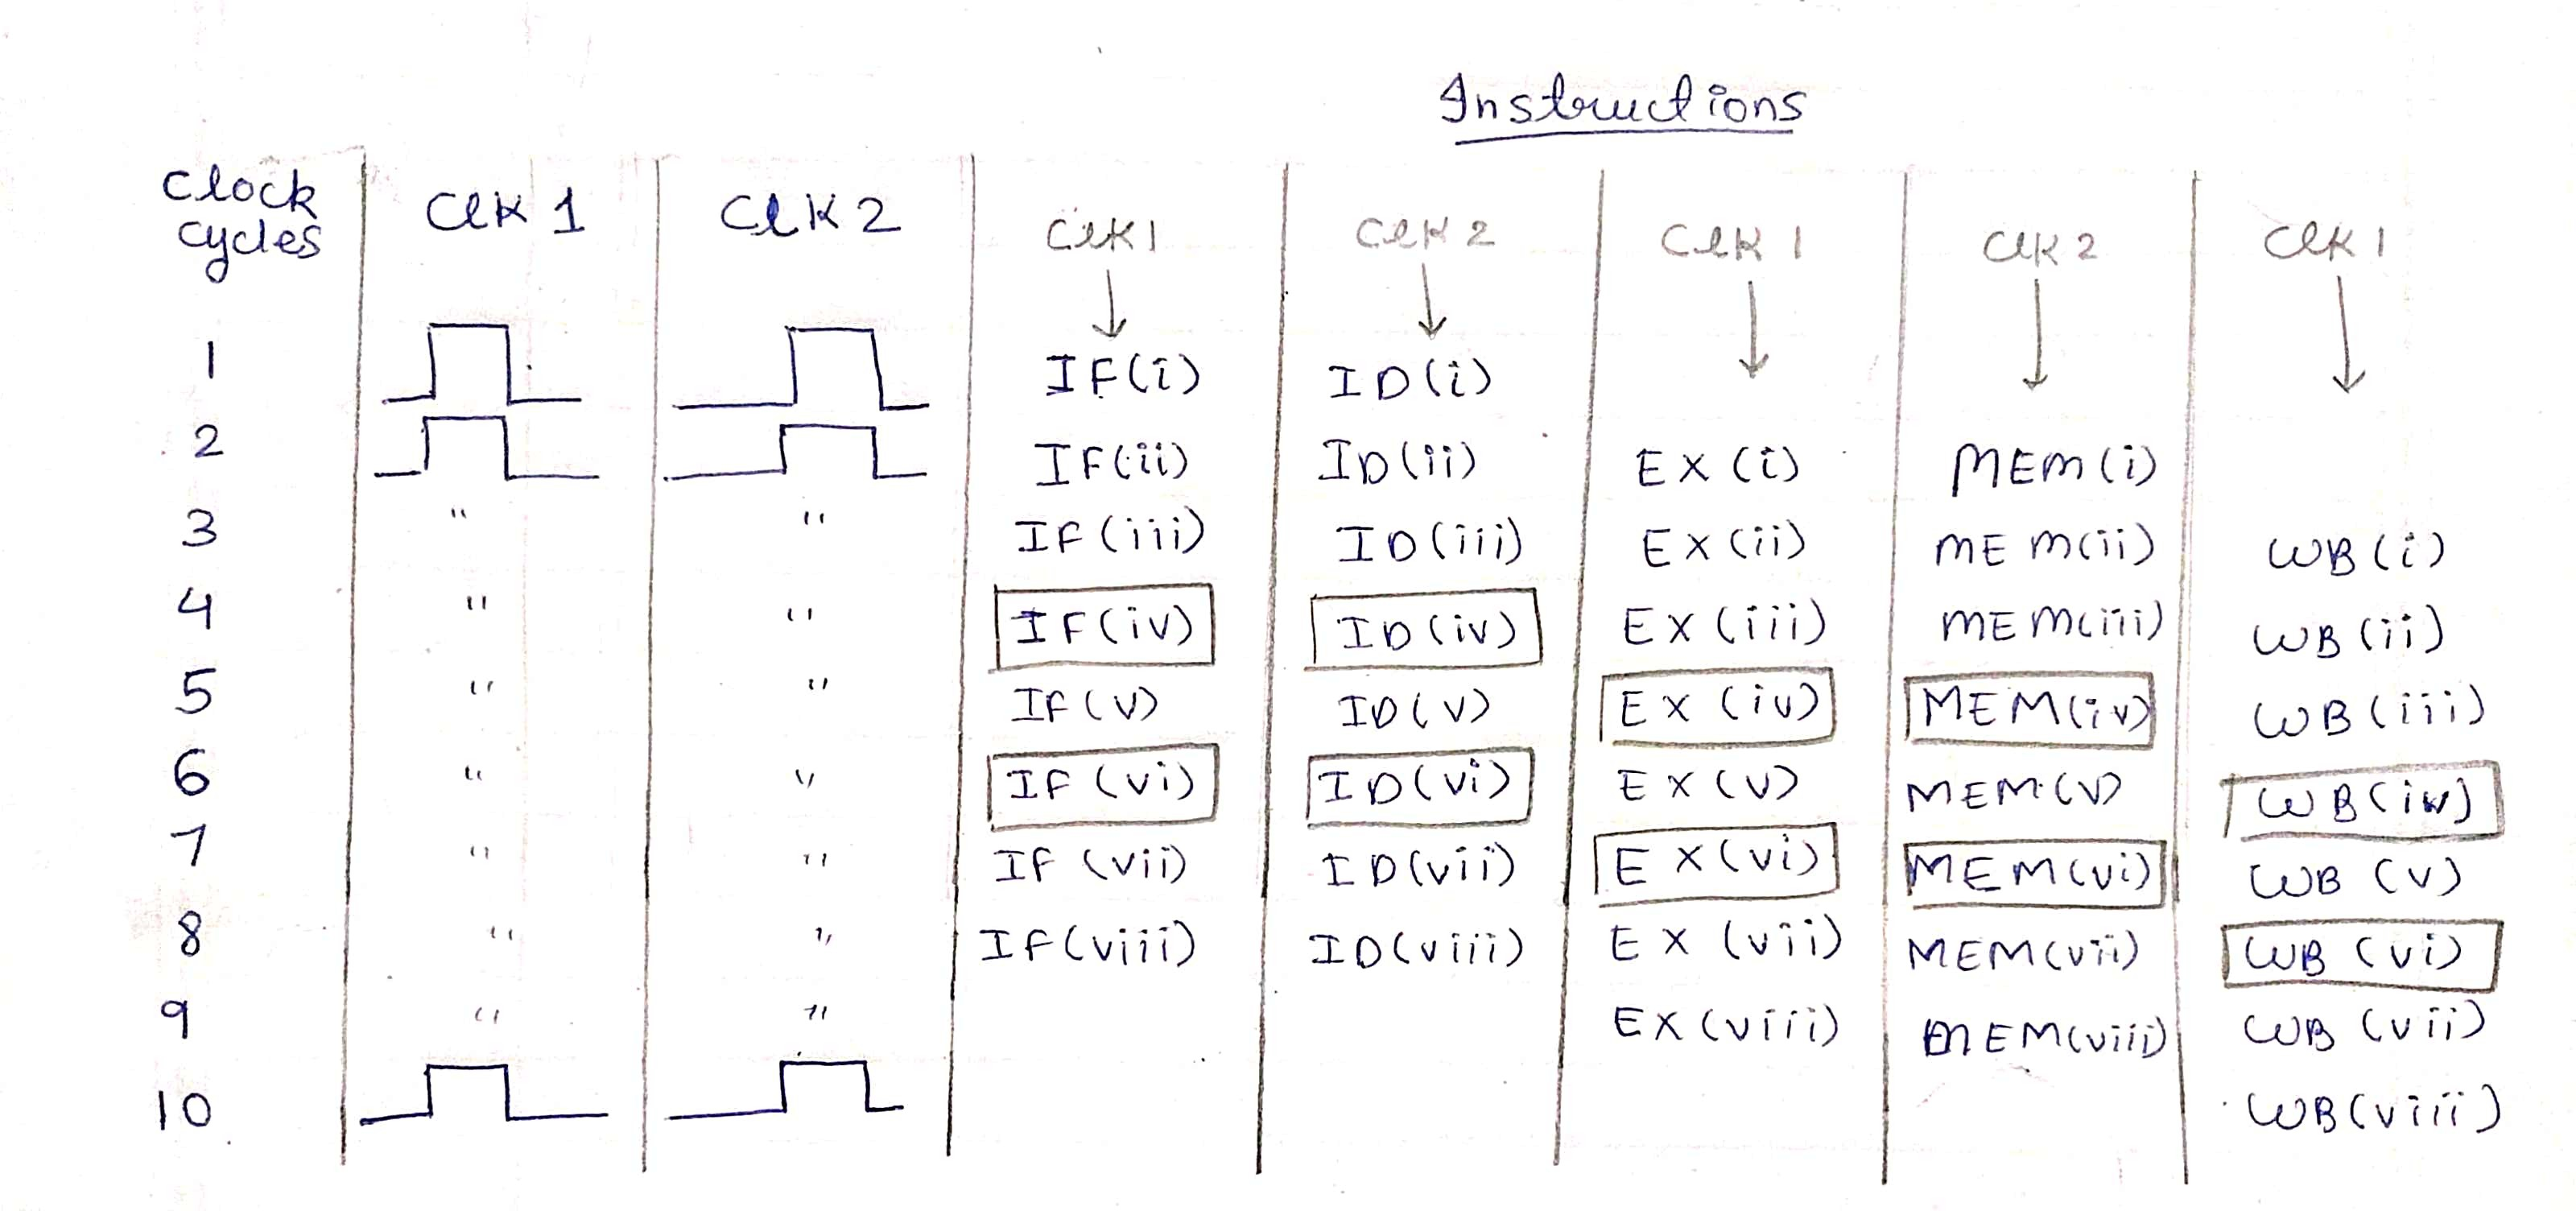 Instructions
Clock cycles CLK 1 CLK 2 CLK 1 CLK 2 CLK 1 CLK 2 CLK 1
1 IF(i) ID(i)
2 IF(ii) ID(ii) EX(i) MEM(i)
3 " " IF(iii) ID(iii) EX(ii) MEM(ii) WB(i)
4 " " IF(iv) ID(iv) EX(iii) MEM(iii) WB(ii)
5 " " IF(v) ID(v) EX(iv) MEM(iv) WB(iii)
6 " " IF(vi) ID(vi) EX(v) MEM(v) WB(iv)
7 " " IF(vii) ID(vii) EX(vi) MEM(vi) WB(v)
8 " " IF(viii) ID(viii) EX(vii) MEM(vii) WB(vi)
9 " " EX(viii) MEM(viii) WB(vii)
10 WB(viii)